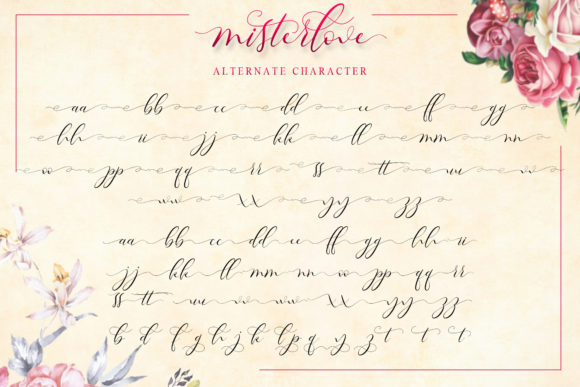 misterlove
ALTERNATE CHARACTER
aa bb cc dd ee ff gg
hh ii jj kk ll mm nn
oo pp qq rr ss tt uu vv
ww xx yy zz
aa bb cc dd ee ff gg hh ii
jj kk ll mm nn oo pp qq rr
ss tt uu vv ww xx yy zz
b d f g h j k l p q y z t t t